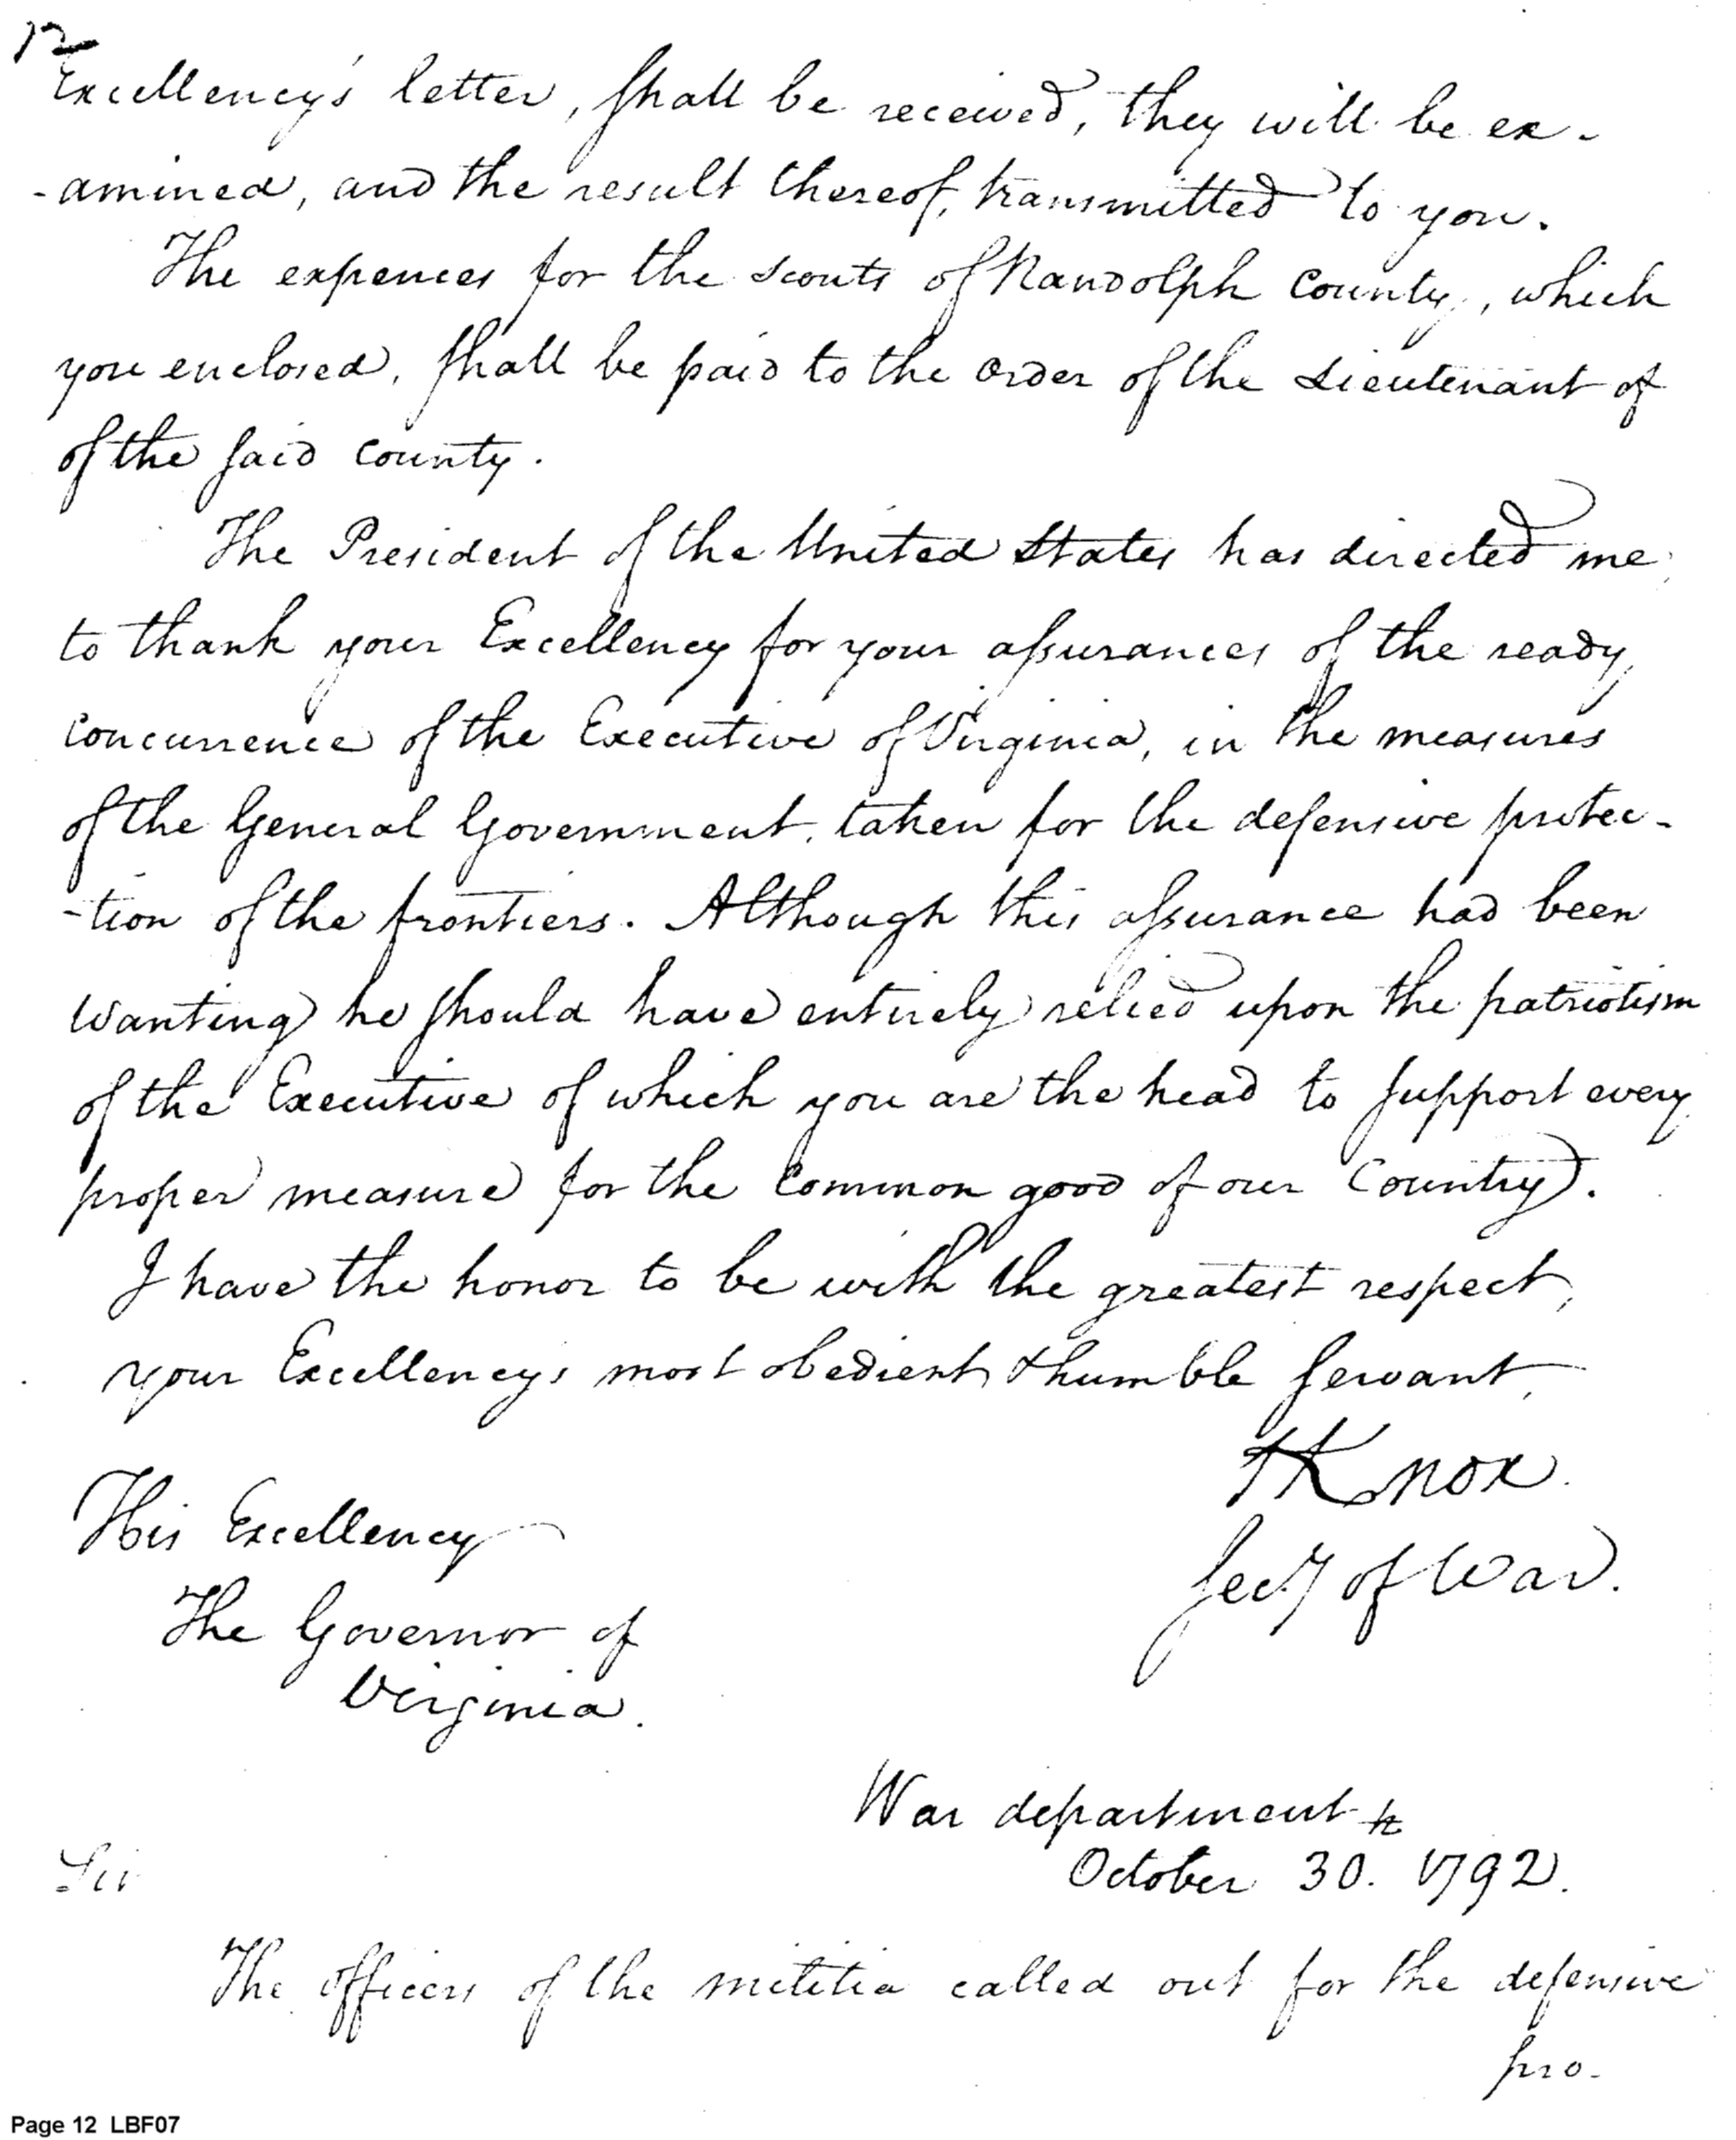 12
Excellency's letter, shall be received, they will be ex-
-amined, and the result thereof, transmitted to you.
The expences for the scouts of Randolph County, which
you enclosed, shall be paid to the order of the Lieutenant of
of the said county.
The President of the United States has directed me
to thank your Excellency for your assurances of the ready
concurrence of the Executive of Virginia, in the measures
of the General Government, taken for the defensive protec-
-tion of the frontiers. Although this assurance had been
wanting he should have entirely relied upon the patriotism
of the Executive of which you are the head to support every
proper measure for the common good of our Country.
I have the honor to be with the greatest respect,
your Excellency's most obedient & humble servant,
HKnox.
Secy of War.
His Excellency
The Governor of
Virginia.
War department
October 30. 1792.
Sir
The officers of the militia called out for the defensive
pro-
Page 12 LBF07